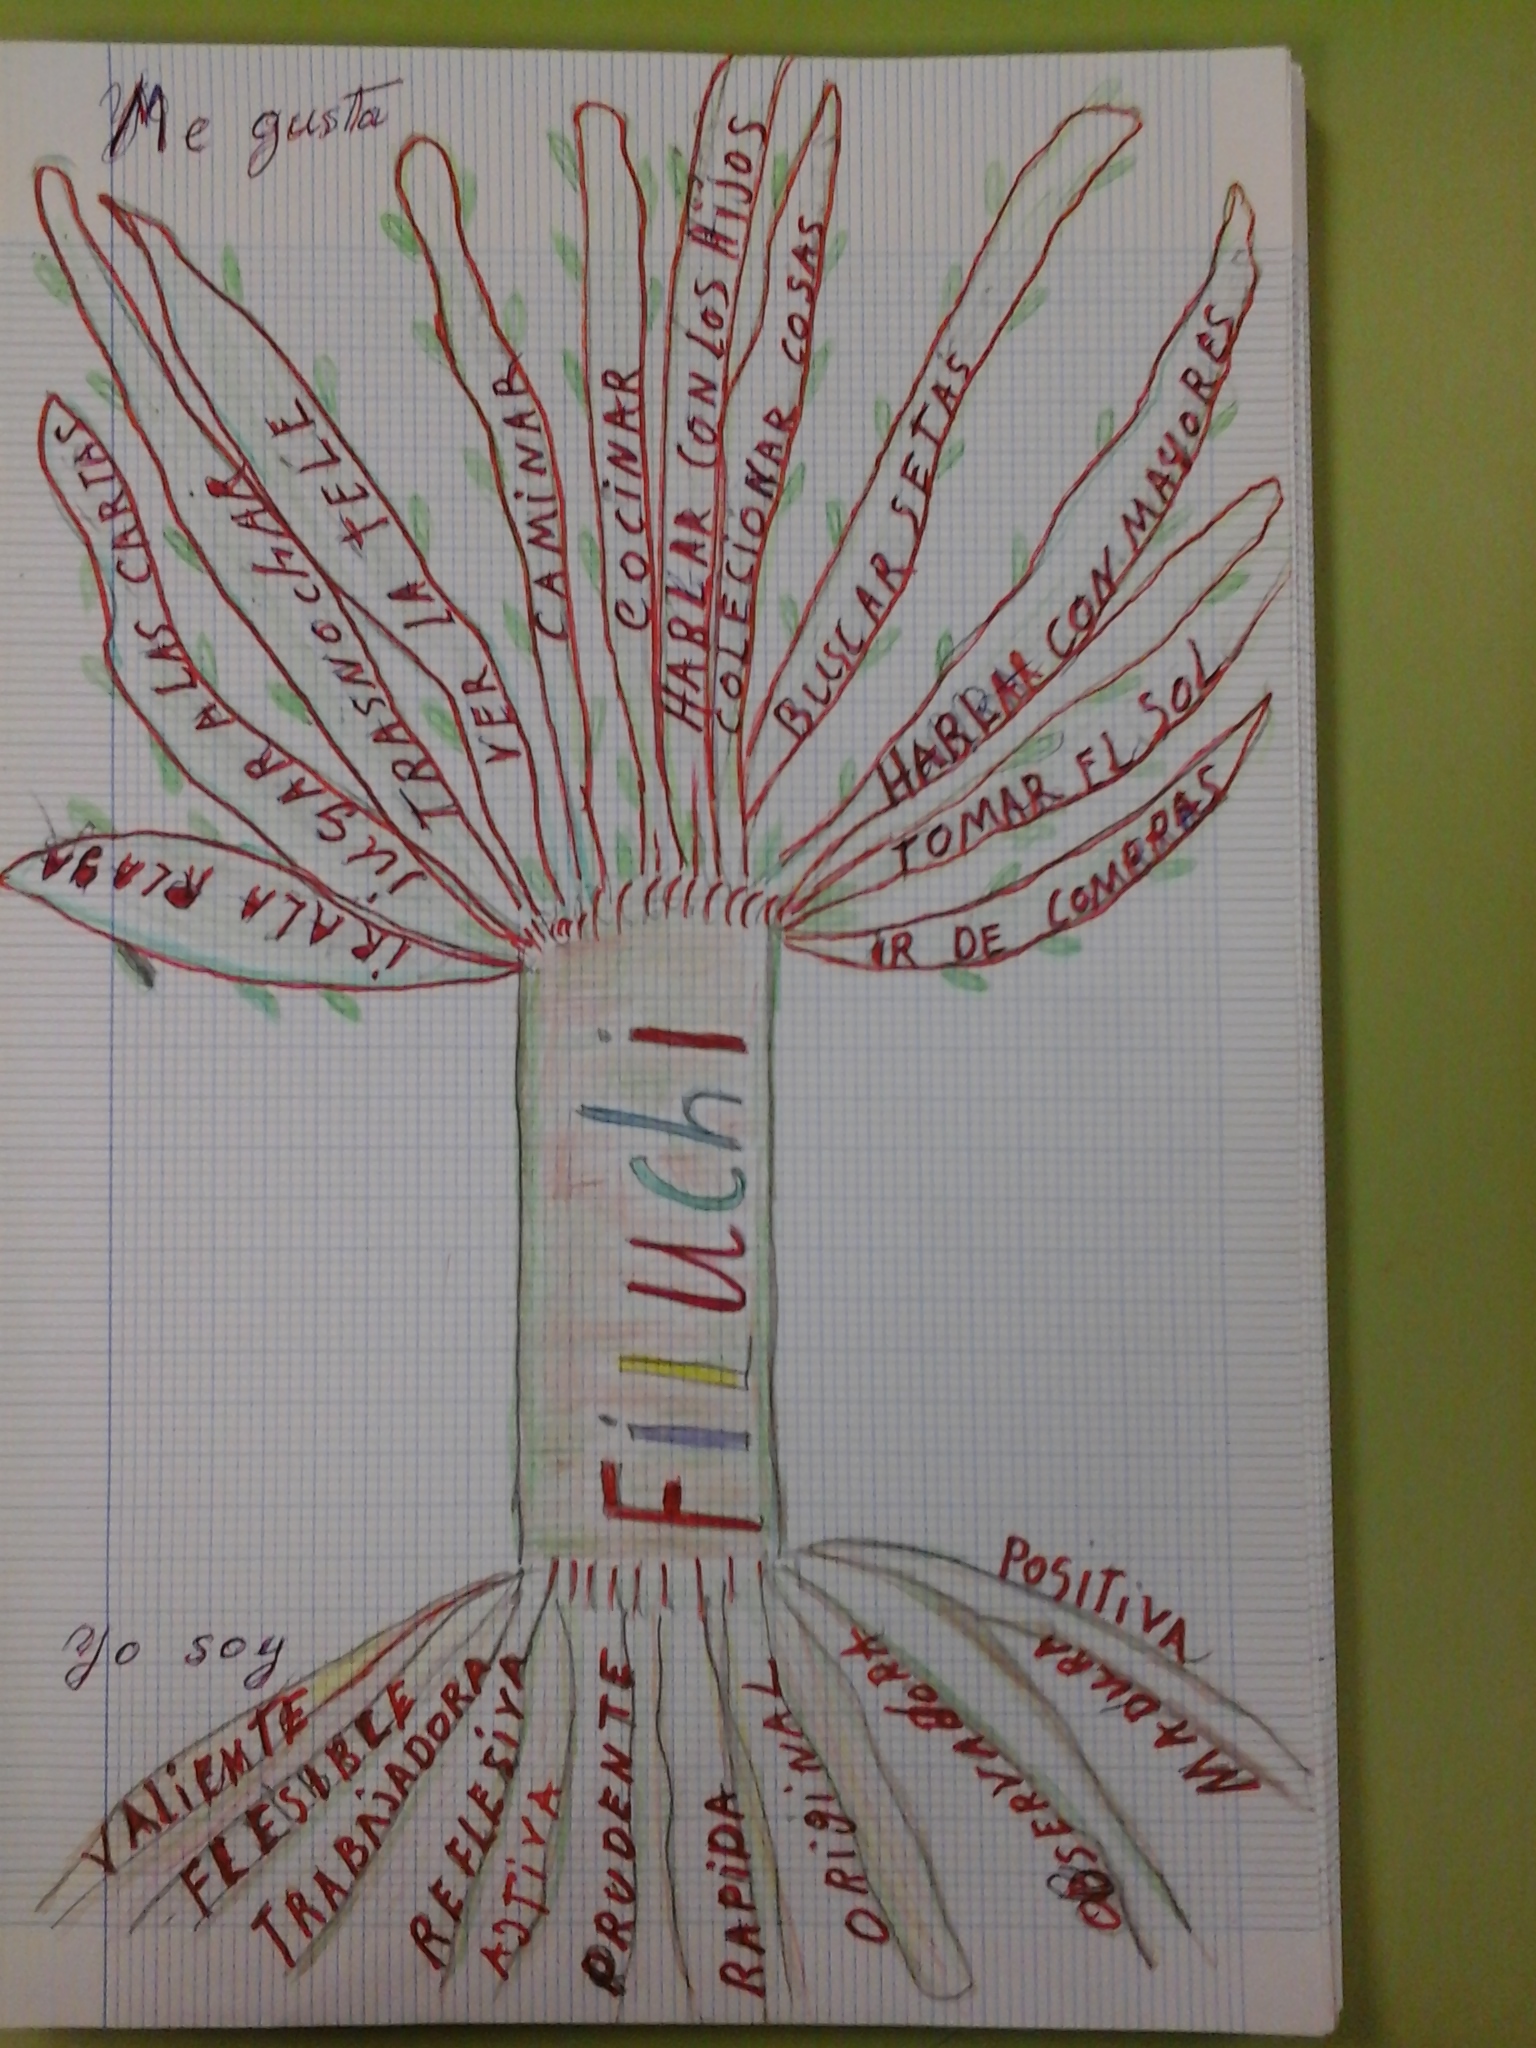 Me gusta
IR A LA PLAYA
JUGAR A LAS CARTAS
TRASNOCHAR
VER LA TELE
CAMINAR
COCINAR
HABLAR CON LOS HIJOS
COLECIONAR COSAS
BUSCAR SETAS
HABLAR CON MAYORES
TOMAR EL SOL
IR DE COMPRAS
FiLUChi
Yo soy
VALIENTE
FLESIBLE
TRABAJADORA
REFLESIVA
ACTIVA
PRUDENTE
RAPIDA
ORIGINAL
OBSERVADORA
MADURA
POSITIVA